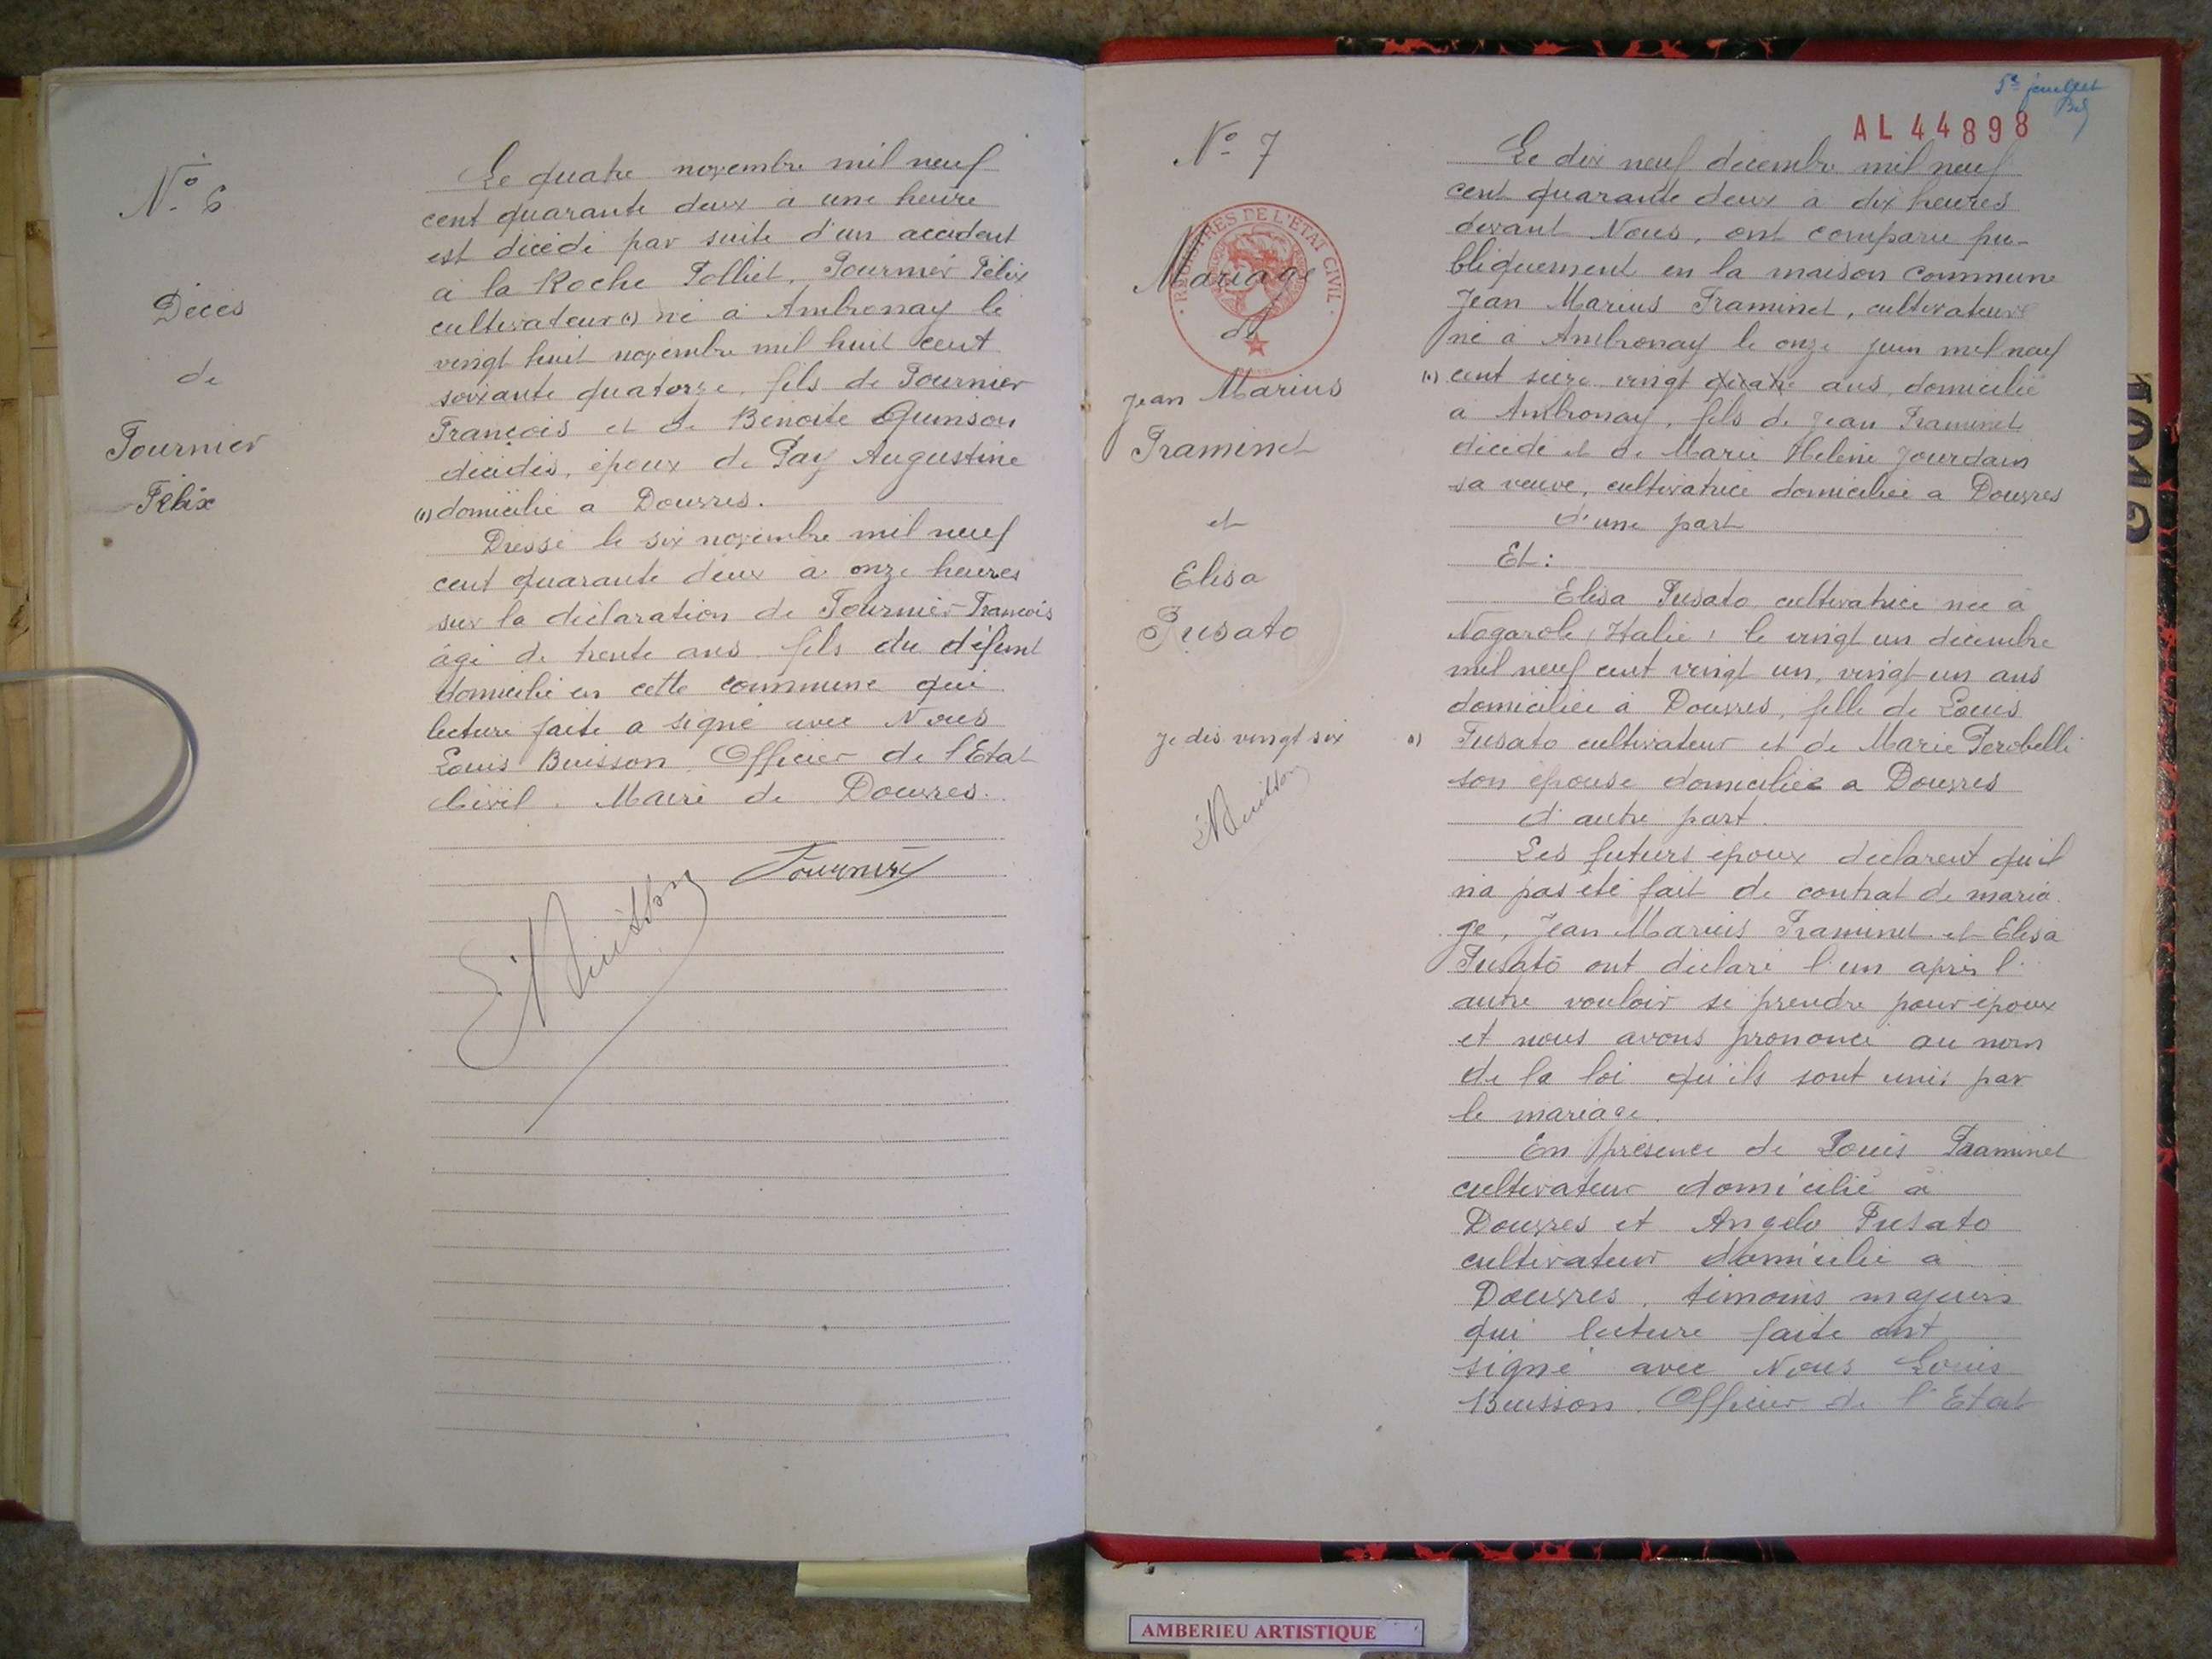 N° 6
Décès
de
Tournier
Félix
Le quatre novembre mil neuf
cent quarante deux à une heure
est décédé par suite d'un accident
à la Roche Polliet, Tournier Félix
cultivateur (1) né à Ambronay le
vingt huit novembre mil huit cent
soixante quatorze, fils de Tournier
François et de Benoite Quinson
décédés, époux de Pay Augustine
(1) domicilié à Douvres.
Dressé le six novembre mil neuf
cent quarante deux à onze heures
sur la déclaration de Tournier François
âgé de trente ans, fils du défunt
domicilié en cette commune qui
lecture faite a signé avec Nous
Louis Buisson Officier de l'Etat
Civil. Maire de Douvres.
Tournier
Buisson
5e feuillet
AL 44898
N° 7
REGISTRES DE L'ETAT CIVIL
Mariage
de
Jean Marius
Traminet
et
Elisa
Fusato
Je dis vingt six
Buisson
Le dix neuf décembre mil neuf
cent quarante deux à dix heures
devant Nous, ont comparu pu-
bliquement en la maison commune
Jean Marius Traminet, cultivateur
né à Ambronay le onze juin mil neuf
(1) cent seize vingt quatre ans, domicilié
à Ambronay, fils de Jean Traminet
décédé et de Marie Hélène Jourdain
sa veuve, cultivatrice domiciliée à Douvres
d'une part
Et :
Elisa Fusato cultivatrice née à
Nogarole (Italie) le vingt un décembre
mil neuf cent vingt un, vingt-un ans
domiciliée à Douvres, fille de Louis
Fusato cultivateur et de Marie Perobelli
son épouse domiciliés à Douvres
d'autre part.
Les futurs époux déclarent qu'il
n'a pas été fait de contrat de maria
ge, Jean Marius Traminet et Elisa
Fusato ont déclaré l'un après l'
autre vouloir se prendre pour époux
et nous avons prononcé au nom
de la loi qu'ils sont unis par
le mariage.
En présence de Louis Traminet
cultivateur domicilié à
Douvres et Angelo Fusato
cultivateur domicilié à
Douvres, témoins majeurs
qui lecture faite ont
signé avec Nous Louis
Buisson, Officier de l'Etat
AMBERIEU ARTISTIQUE